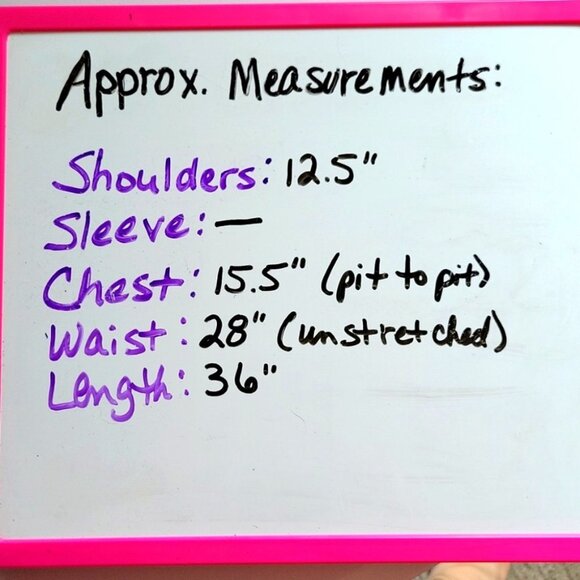 Approx. Measurements:
Shoulders: 12.5"
Sleeve: —
Chest: 15.5" (pit to pit)
Waist: 28" (unstretched)
Length: 36"